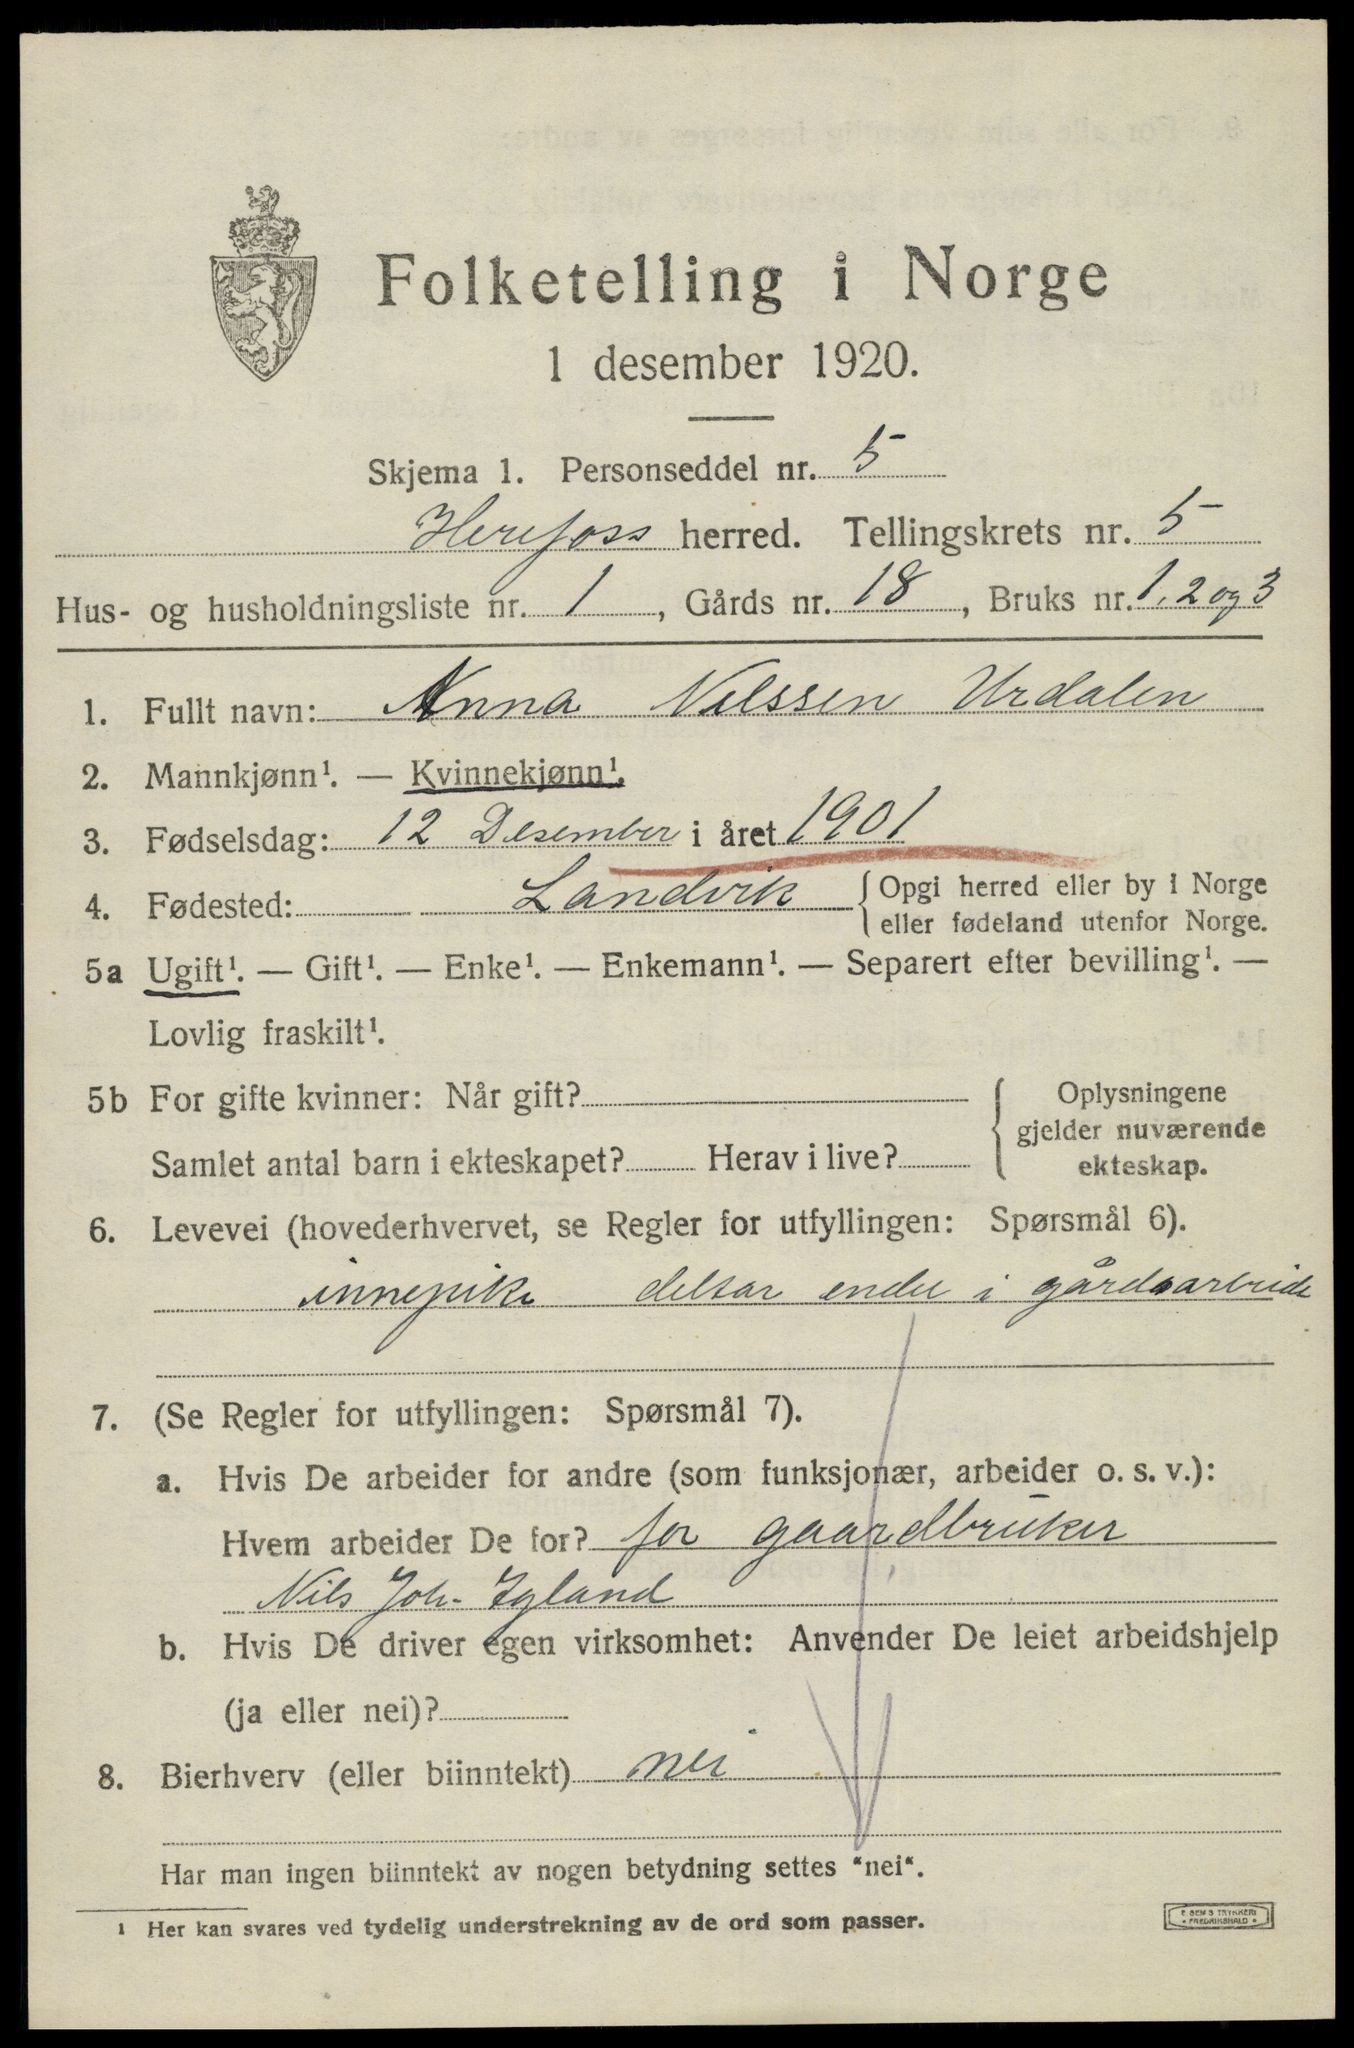 Folketelling i Norge
1 desember 1920.
Skjema 1. Personseddel nr. 5
Herefoss herred. Tellingskrets nr. 5
Hus- og husholdningsliste nr. 1, Gårds nr. 18, Bruks nr. 1, 2 og 3
1. Fullt navn: Anna Nilssen Urdalen
2. Mannkjønn¹. — Kvinnekjønn¹.
3. Fødselsdag: 12 Desember i året 1901
4. Fødested: Landvik { Opgi herred eller by i Norge
eller fødeland utenfor Norge.
5a Ugift¹. — Gift¹. — Enke¹. — Enkemann¹. — Separert efter bevilling¹. —
Lovlig fraskilt¹.
5b For gifte kvinner: Når gift?
Samlet antal barn i ekteskapet? Herav i live?
{ Oplysningene
gjelder nuværende
ekteskap.
6. Levevei (hovederhvervet, se Regler for utfyllingen: Spørsmål 6).
innepike deltar i gårdsarbeide
7. (Se Regler for utfyllingen: Spørsmål 7).
a. Hvis De arbeider for andre (som funksjonær, arbeider o. s. v.):
Hvem arbeider De for? for gaardbruker
Nils Joh. Igland
b. Hvis De driver egen virksomhet: Anvender De leiet arbeidshjelp
(ja eller nei)?
8. Bierhverv (eller biinntekt) nei
Har man ingen biinntekt av nogen betydning settes "nei".
1 Her kan svares ved tydelig understrekning av de ord som passer.
E. SEM'S TRYKKERI
• FREDRIKSHALD •